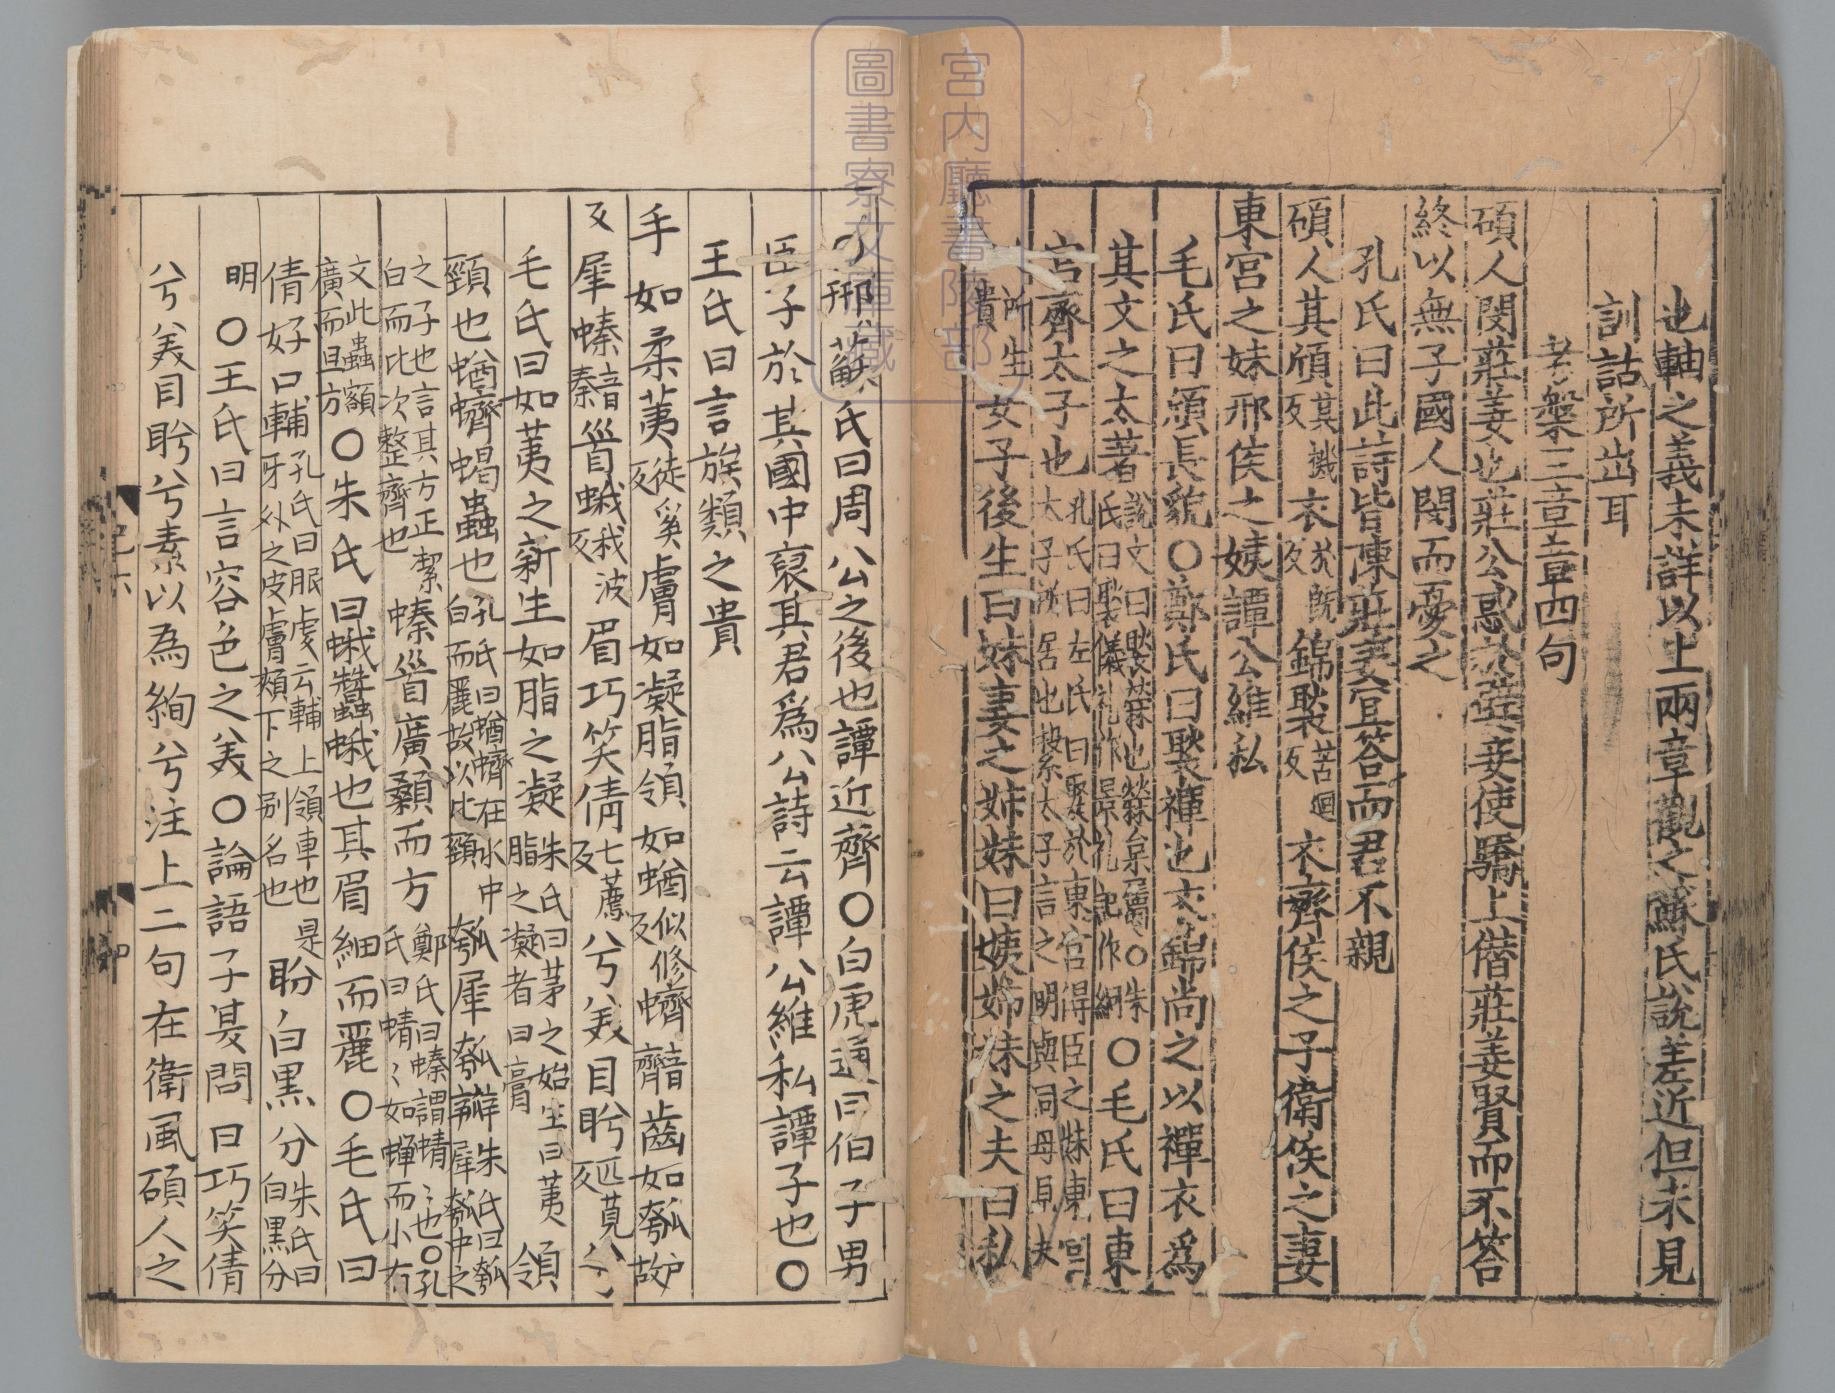 也軸之義未詳以上兩章觀之蘇氏說差近但未見
訓詁所出耳
考槃三章章四句
碩人閔莊姜也莊公惑於嬖妾使驕上僭莊姜賢而不答
終以無子國人閔而憂之
孔氏曰此詩皆陳莊姜宜答而君不親
碩人其頎其機反衣於旣反錦褧苦迴反衣齊侯之子衛侯之妻
東宮之妹邢侯之姨譚公維私
毛氏曰頎長貌○鄭氏曰褧襌也衣錦尚之以襌衣爲
其文之太著說文曰褧檾也檾枲屬○朱氏曰褧儀禮作景禮記作絅○毛氏曰東
宮齊太子也孔氏曰左氏曰娶於東宮得臣之妹東宮太子所居也繫太子言之明與同母見夫
人所生貴女子後生曰妹妻之姊妹曰姨姊妹之夫曰私
邢蘇氏曰周公之後也譚近齊○白虎通曰伯子男
臣子於其國中褒其君爲公詩云譚公維私譚子也○
王氏曰言族類之貴
手如柔荑徒奚反膚如凝脂領如蝤似修反蠐音齊齒如瓠故戶
反犀螓音秦首蛾我波反眉巧笑倩七薦反兮美目盼匹莧反兮
毛氏曰如荑之新生如脂之凝朱氏曰茅之始生曰荑脂之凝者曰膏領
頸也蝤蠐蝎蟲也孔氏曰蝤蠐在水中白而麗故以比頸瓠犀瓠瓣朱氏曰瓠犀瓠中之
之子也言其方正潔白而比次整齊也螓首廣顙而方鄭氏曰螓謂蜻蜻也○孔氏曰蜻〻如蟬而小有
文此蟲額廣而且方○朱氏曰蛾蠶蛾也其眉細而麗○毛氏曰
倩好口輔孔氏曰服虔云輔上領車也是牙外之皮膚頰下之別名也盼白黑分朱氏曰白黑分
明○王氏曰言容色之美○論語子夏問曰巧笑倩
兮美目盼兮素以為絢兮注上二句在衛風碩人之
宮内廳書陵部
圖書寮文庫藏